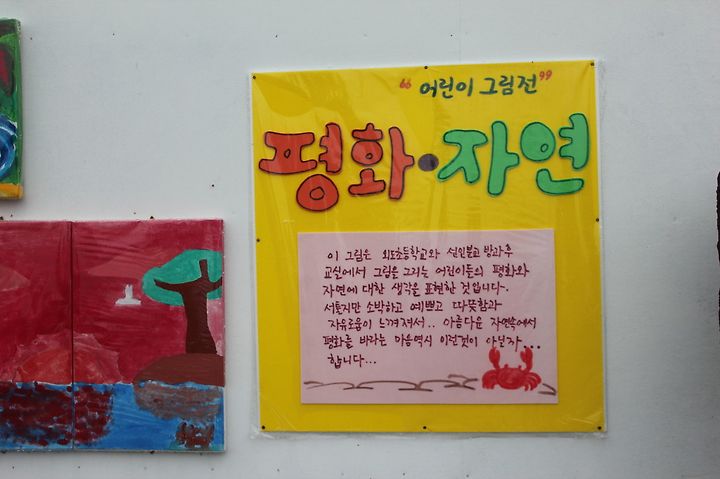 “어린이 그림전”
평화·자연
이 그림은 외도초등학교와 선인분교 방과후
교실에서 그림을 그리는 어린이들의 평화와
자연에 대한 생각을 표현한 것입니다.
서툴지만 소박하고 예쁘고 따뜻함과
자유로움이 느껴져서.. 아름다운 자연속에서
평화를 바라는 마음역시 이런것이 아닐자...
합니다...